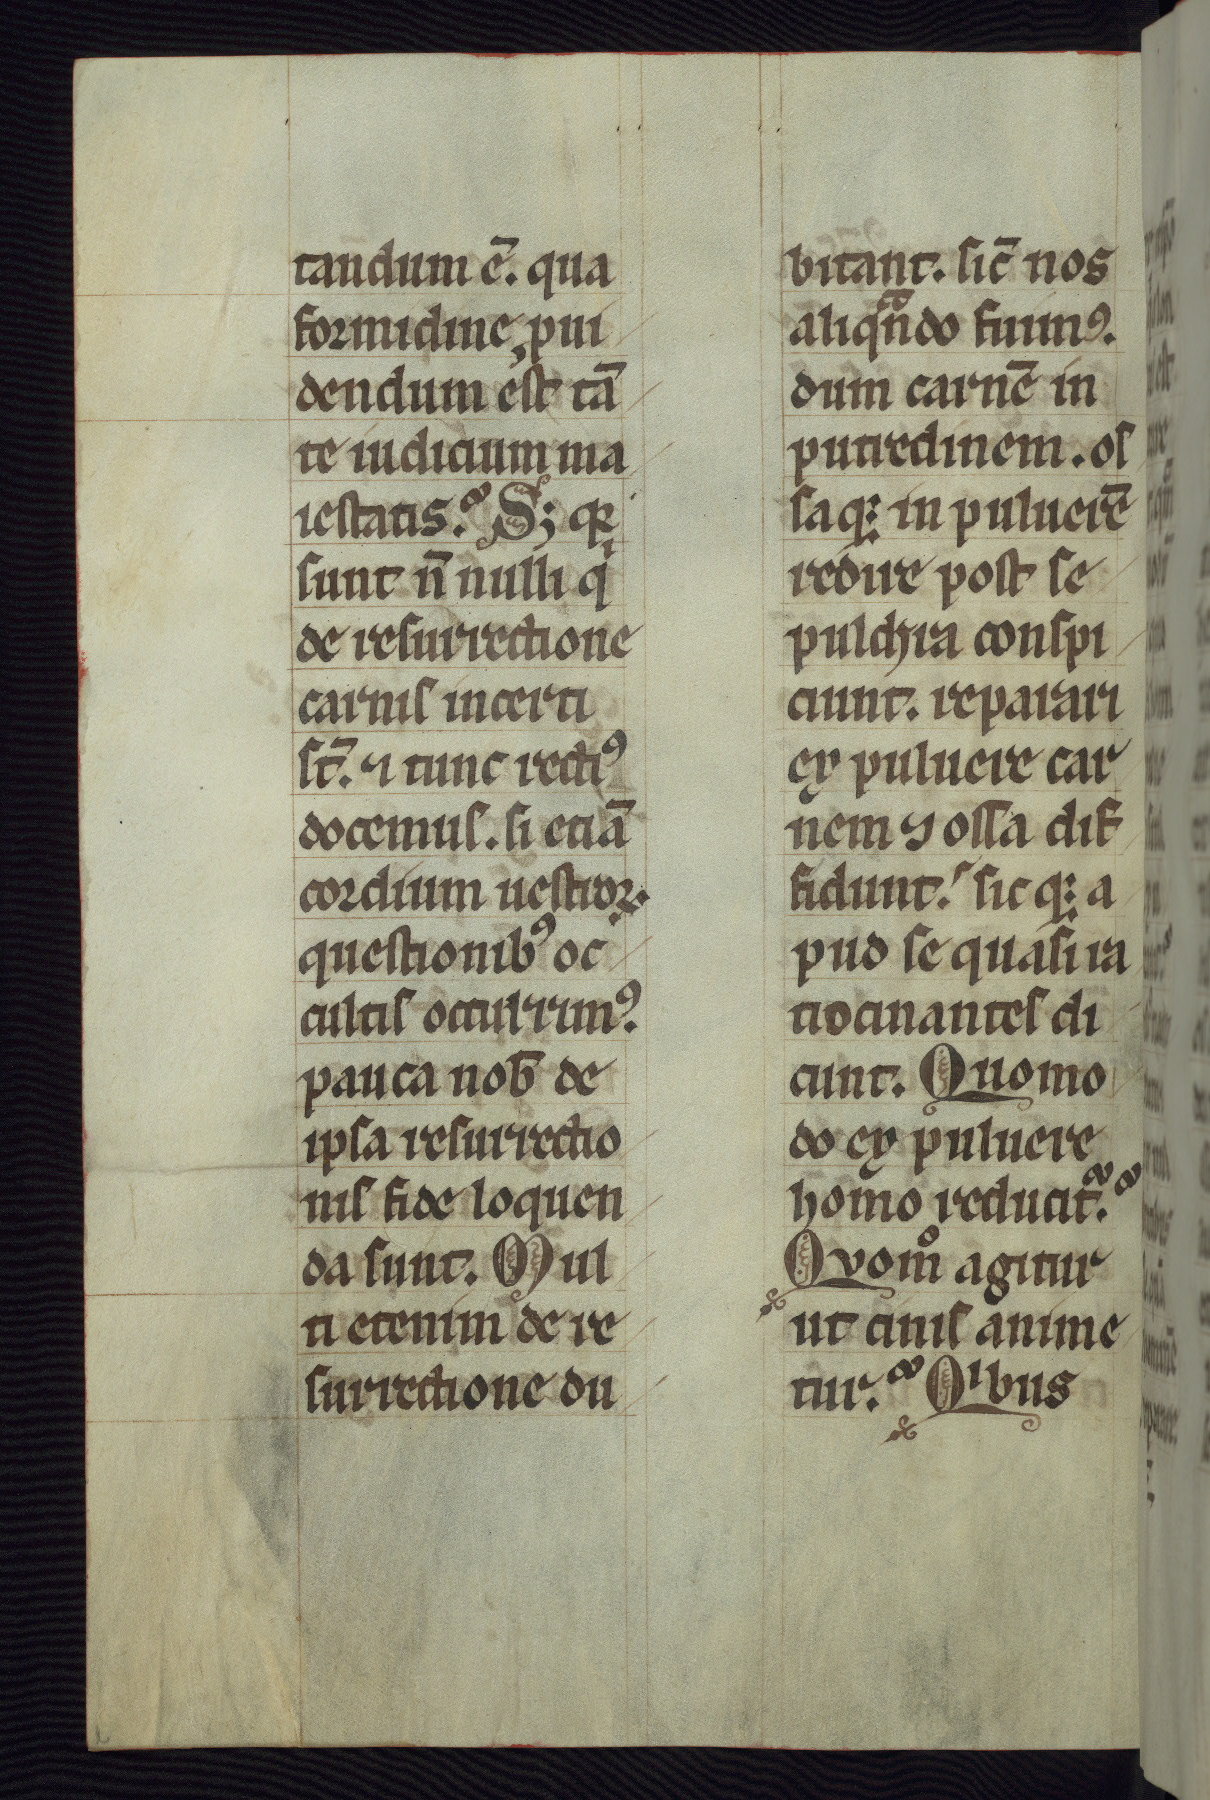 tandum ē. qua
formidine ꝓui
dendum est tā
te iudicium ma
iestatis. Sꝫ qꝛ
sunt n̄ nulli qⁱ
de resurrectione
carnis incerti
st̄. ⁊ tunc rectiꝰ
docemus. si etiā
cordium uestroꝝ.
questionibꝰ oc
cultis occurrimꝰ.
pauca nob̄ de
ipsa resurrectio
nis fide loquen
da sunt. Mul
ti etenim de re
surrectione du
bitant. sic̄ nos
aliqᷓndo fuimꝰ.
dum carnē in
putredinem. os
saqꝫ in puluerē
redire post se
pulchra conspi
ciunt. reparari
ex puluere car
nem ⁊ ossa dif
fidunt. sicqꝫ a
pud se quasi ra
tiocinantes di
cunt. Quomo
do ex puluere
homo reducit᷑.
Quom̊ agitur
ut cinis anime
tur. Qⁱbus